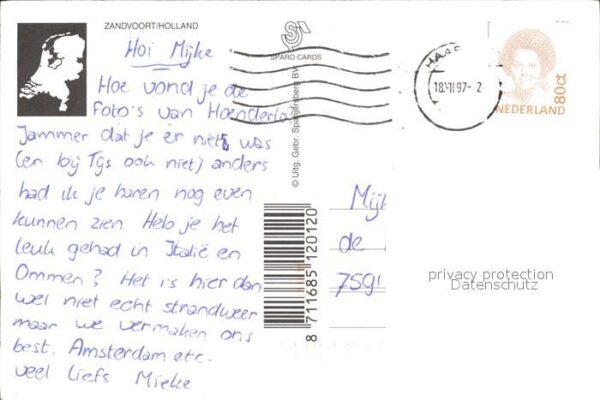 ZANDVOORT/HOLLAND
Hoi Mijke
Hoe vond je de
foto's van Hoenderlo?
Jammer dat je er niet was
(en bij Tgs ook niet) anders
had ik je haren nog even
kunnen zien. Heb je het
leuk gehad in Italië en
Ommen? Het is hier dan
wel niet echt strandweer
maar we vermaken ons
best. Amsterdam etc.
veel liefs Mieke
SPARO CARDS
© Uitg. Gebr. Spanjersberg BV.
8 711685 120120
18.VII.97- 2
80ct
NEDERLAND
Mijk
de
7591
privacy protection
Datenschutz